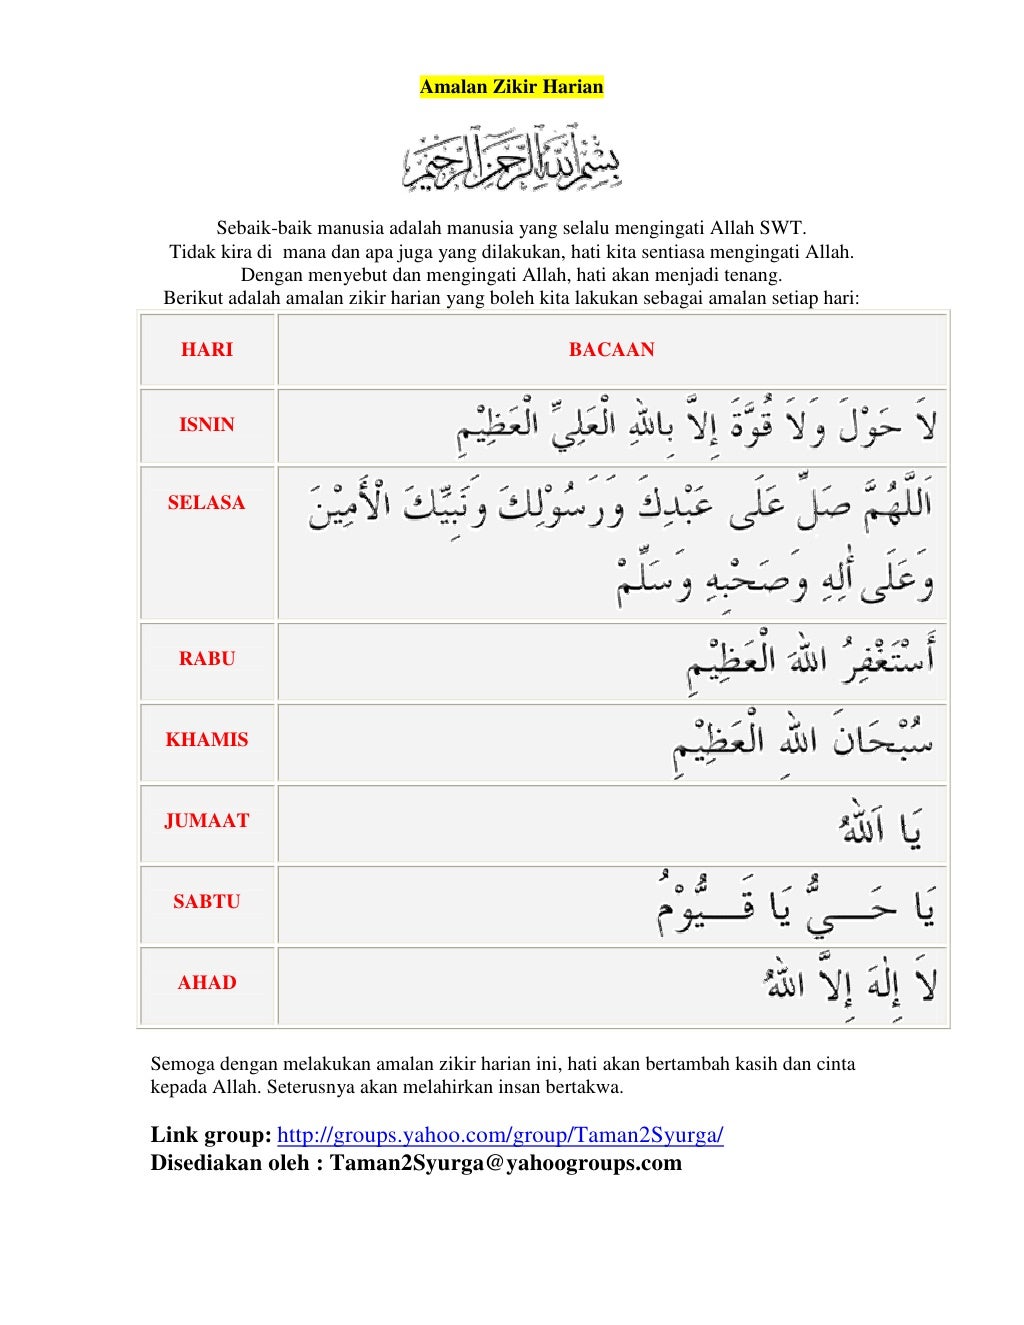 Amalan Zikir Harian
بِسْمِ اللهِ الرَّحْمَنِ الرَّحِيْمِ
Sebaik-baik manusia adalah manusia yang selalu mengingati Allah SWT.
Tidak kira di  mana dan apa juga yang dilakukan, hati kita sentiasa mengingati Allah.
Dengan menyebut dan mengingati Allah, hati akan menjadi tenang.
Berikut adalah amalan zikir harian yang boleh kita lakukan sebagai amalan setiap hari:
HARI BACAAN
ISNIN لاَ حَوْلَ وَلاَ قُوَّةَ إِلاَّ بِاللهِ الْعَلِيِّ الْعَظِيْمِ
SELASA اَللَّهُمَّ صَلِّ عَلَى عَبْدِكَ وَرَسُوْلِكَ وَنَبِيِّكَ الْأَمِيْنَ
وَعَلَى أٰلِهِ وَصَحْبِهِ وَسَلِّمْ
RABU أَسْتَغْفِرُ اللهَ الْعَظِيْمِ
KHAMIS سُبْحَانَ اللهِ الْعَظِيْمِ
JUMAAT يَا اَللهُ
SABTU يَا حَـــيُّ يَا قَـــيُّوْمُ
AHAD لاَ إِلٰهَ إِلاَّ اللهُ
Semoga dengan melakukan amalan zikir harian ini, hati akan bertambah kasih dan cinta
kepada Allah. Seterusnya akan melahirkan insan bertakwa.
Link group: http://groups.yahoo.com/group/Taman2Syurga/
Disediakan oleh : Taman2Syurga@yahoogroups.com